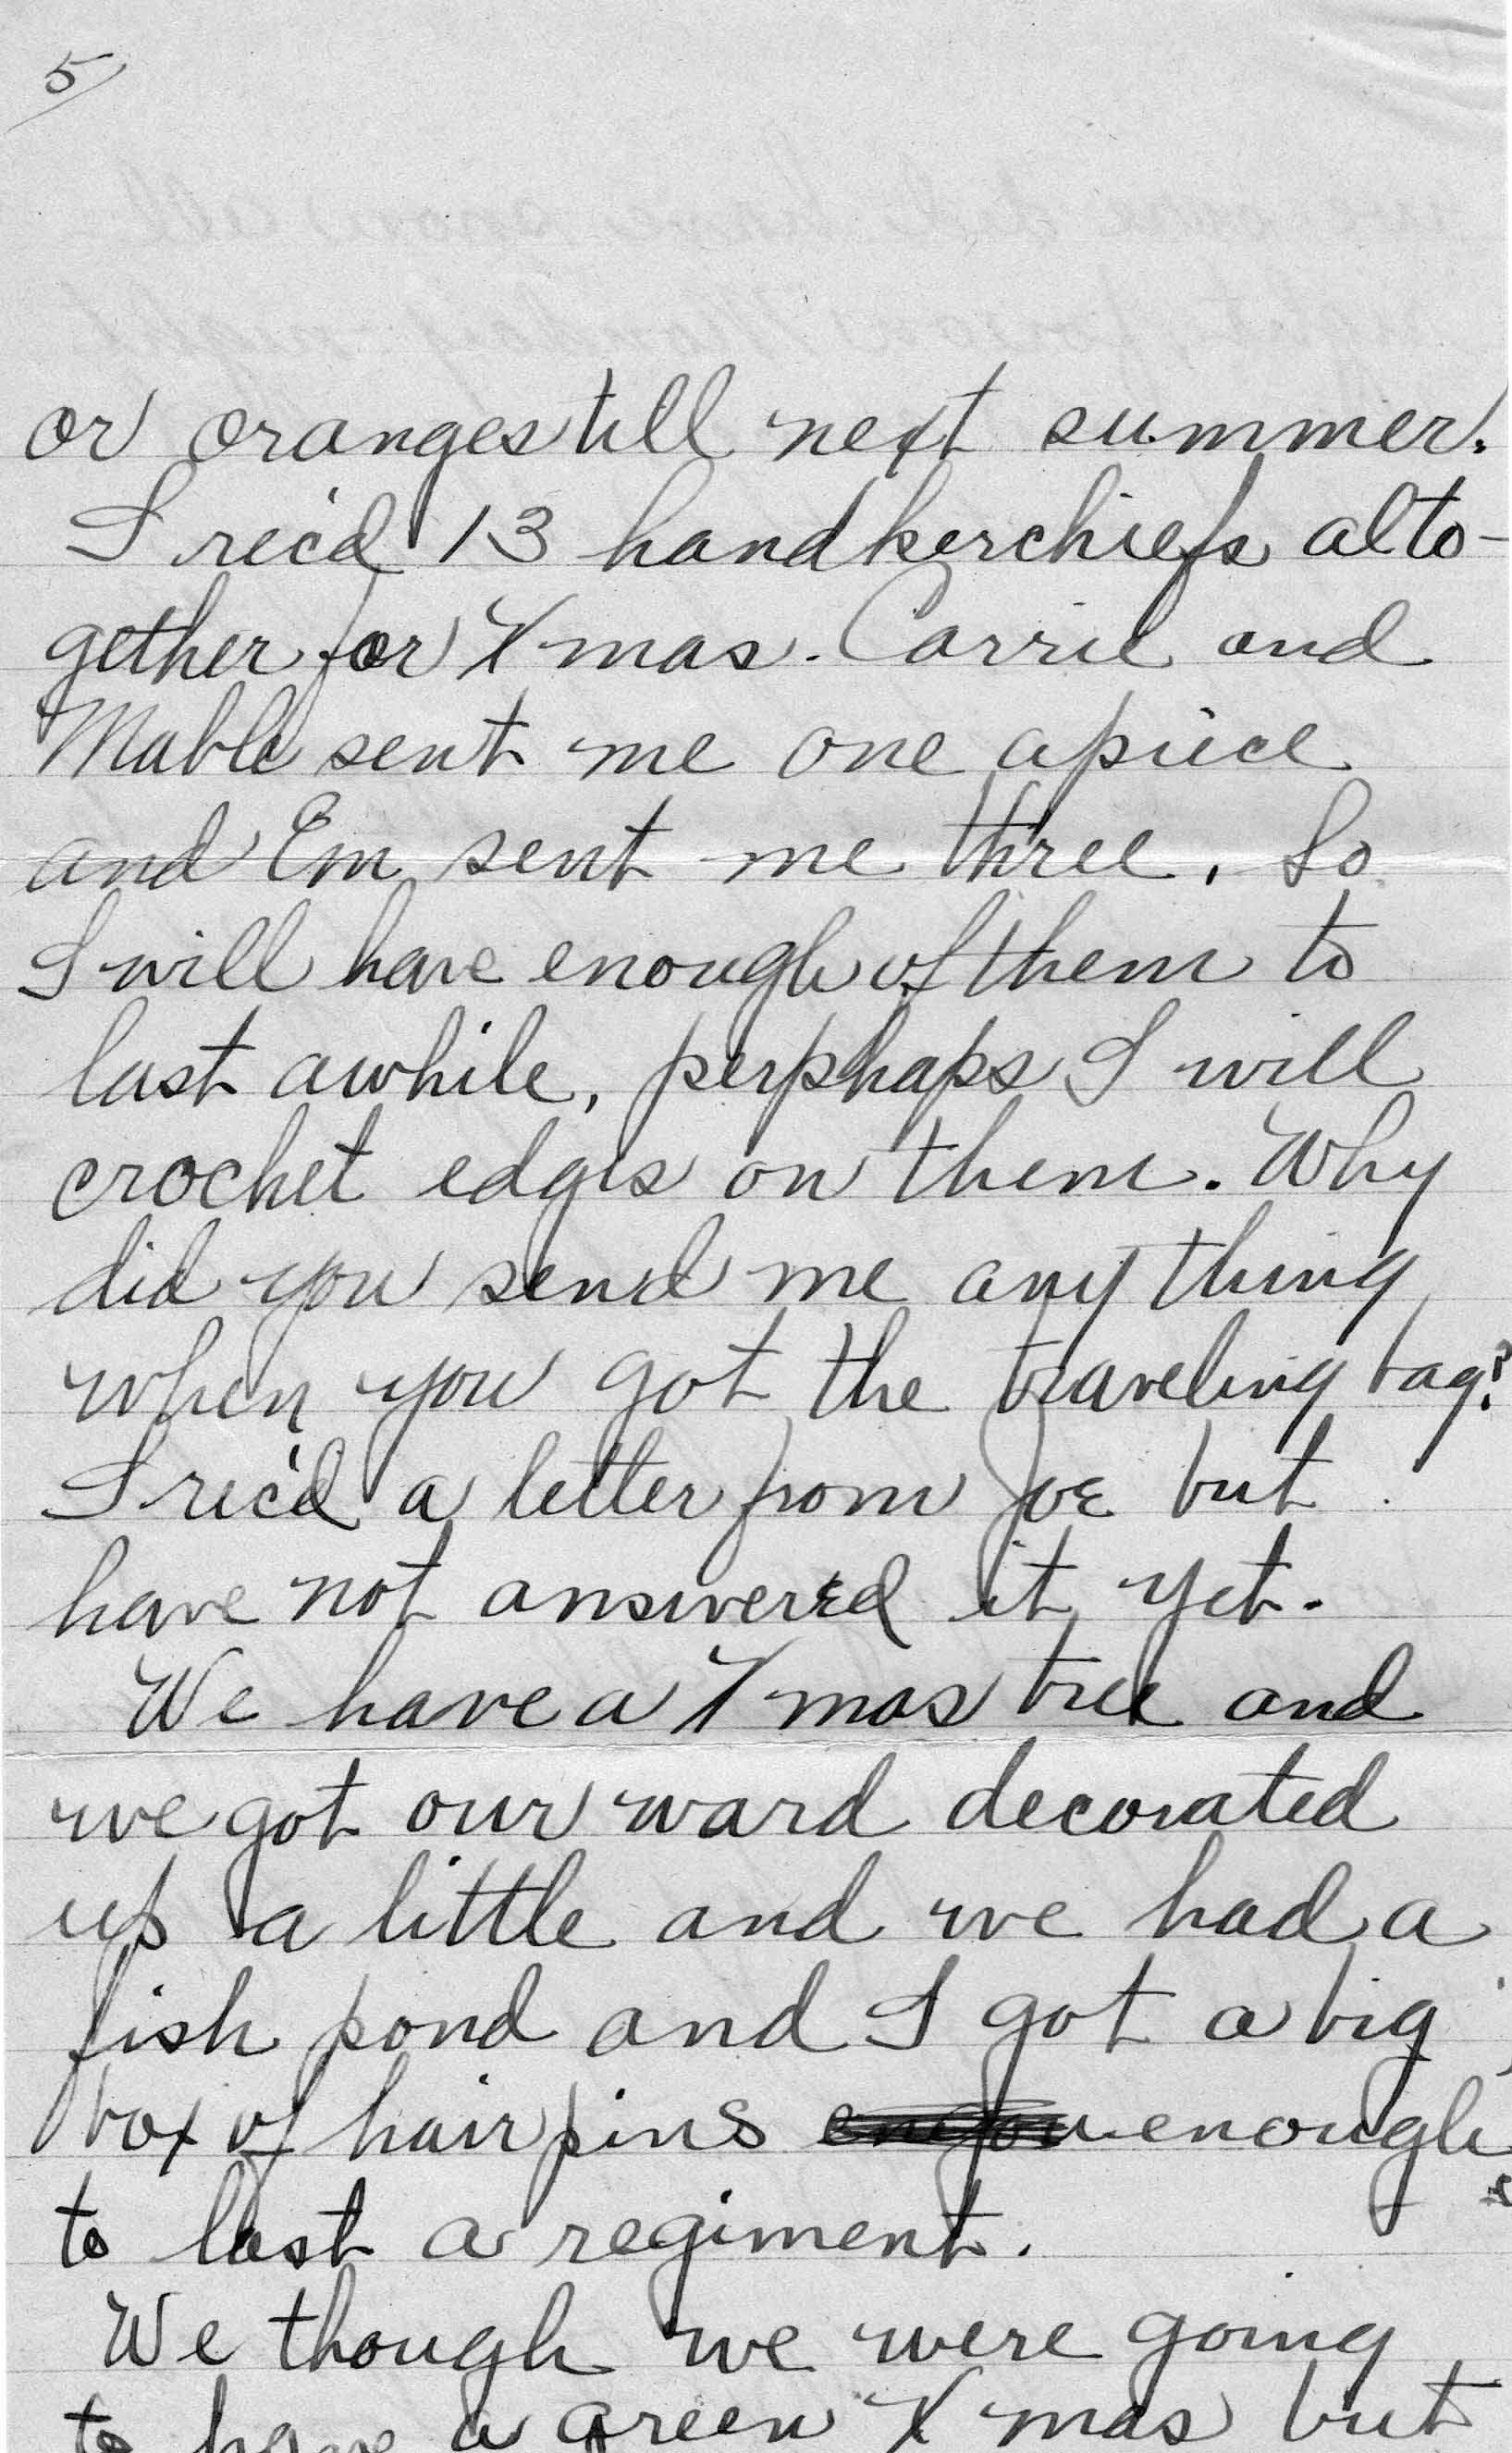 5/
or oranges till next summer.
I rec'd 13 handkerchiefs alto-
gether for Xmas. Carrie and
Mable sent me one apiece
and Em sent me three. So
I will have enough of them to
last awhile, perphaps I will
crochet edges on them. Why
did you send me anything
when you got the traveling bag?
I rec'd a letter from Joe but
have not answered it yet.
We have a Xmas tree and
we got our ward decorated
up a little and we had a
fish pond and I got a big
box of hair pins enough
to last a regiment.
We though we were going
to have a green Xmas but